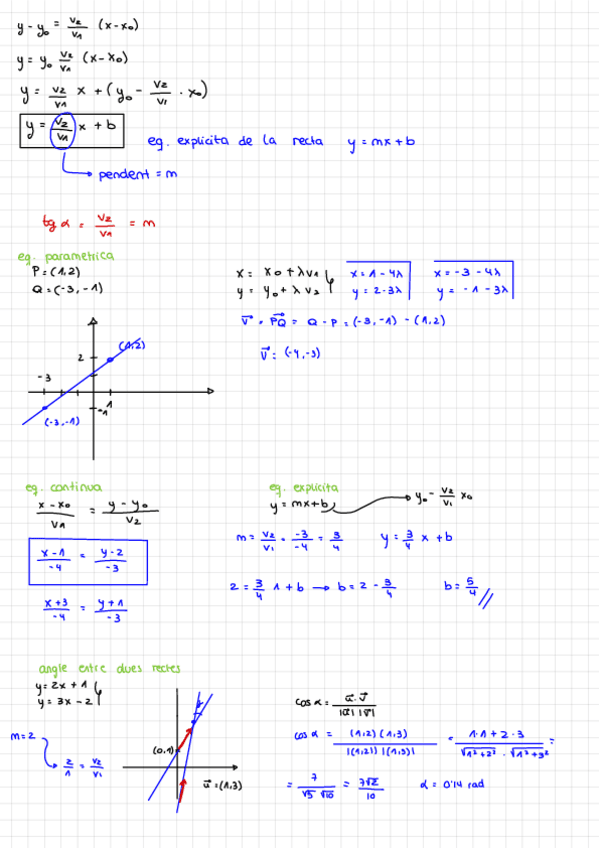 y - y₀ = v₂/v₁ (x - x₀)
y = y₀ v₂/v₁ (x - x₀)
y = v₂/v₁ x + (y₀ - v₂/v₁ · x₀)
y = v₂/v₁ x + b
eq. explicita de la recta y = mx + b
pendent = m
tg α = v₂/v₁ = m
eq. parametrica
P = (1,2)
Q = (-3,-1)
x = x₀ + λv₁
y = y₀ + λv₂
x = 1 - 4λ
y = 2 - 3λ
x = -3 - 4λ
y = -1 - 3λ
v⃗ = PQ⃗ = Q - P = (-3,-1) - (1,2)
v⃗ = (-4,-3)
(1,2)
2
-3
1
-1
(-3,-1)
eq. continua
x - x₀/v₁ = y - y₀/v₂
x - 1/-4 = y - 2/-3
x + 3/-4 = y + 1/-3
eq. explicita
y = mx + b
y₀ - v₂/v₁ x₀
m = v₂/v₁ = -3/-4 = 3/4 y = 3/4 x + b
2 = 3/4 1 + b → b = 2 - 3/4 b = 5/4 //
angle entre dues rectes
y = 2x + 1
y = 3x - 2
m = 2
2/1 = v₂/v₁
(0,1)
u⃗ = (1,3)
cos α = u⃗ · v⃗/|u⃗| |v⃗|
cos α = (1,2)(1,3)/|(1,2)| |(1,3)| = 1·1 + 2·3/√1²+2² · √1²+3² =
= 7/√5 √10 = 7√2/10 α = 0'14 rad